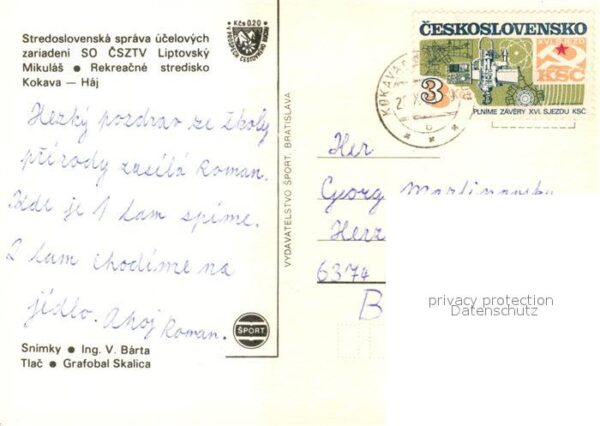 Stredoslovenská správa účelových
zariadení SO ČSZTV Liptovský
Mikuláš ● Rekreačné stredisko
Kokava — Háj
Kčs 0.20
V PROSPECH CESTOVNÉHO RUCHU
Hezký pozdrav ze školy
přírody zasílá Roman.
Kde je 1 tam spíme.
2 tam chodíme na
jídlo. Ahoj Roman.
Snímky ● Ing. V. Bárta
Tlač ● Grafobal Skalica
ŠPORT
VYDAVATEĽSTVO ŠPORT, BRATISLAVA
KOKAVA
ČESKOSLOVENSKO
XVI. SJEZD
KSČ
3 Kčs
PLNÍME ZÁVĚRY XVI. SJEZDU KSČ
Her
Georg
Herz
6374
B
privacy protection
Datenschutz